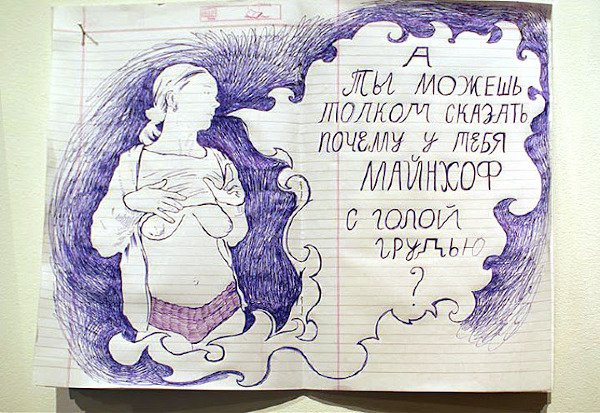 А
ТЫ МОЖЕШЬ
ТОЛКОМ СКАЗАТЬ
ПОЧЕМУ У ТЕБЯ
МАЙНХОФ
С ГОЛОЙ
ГРУДЬЮ
?